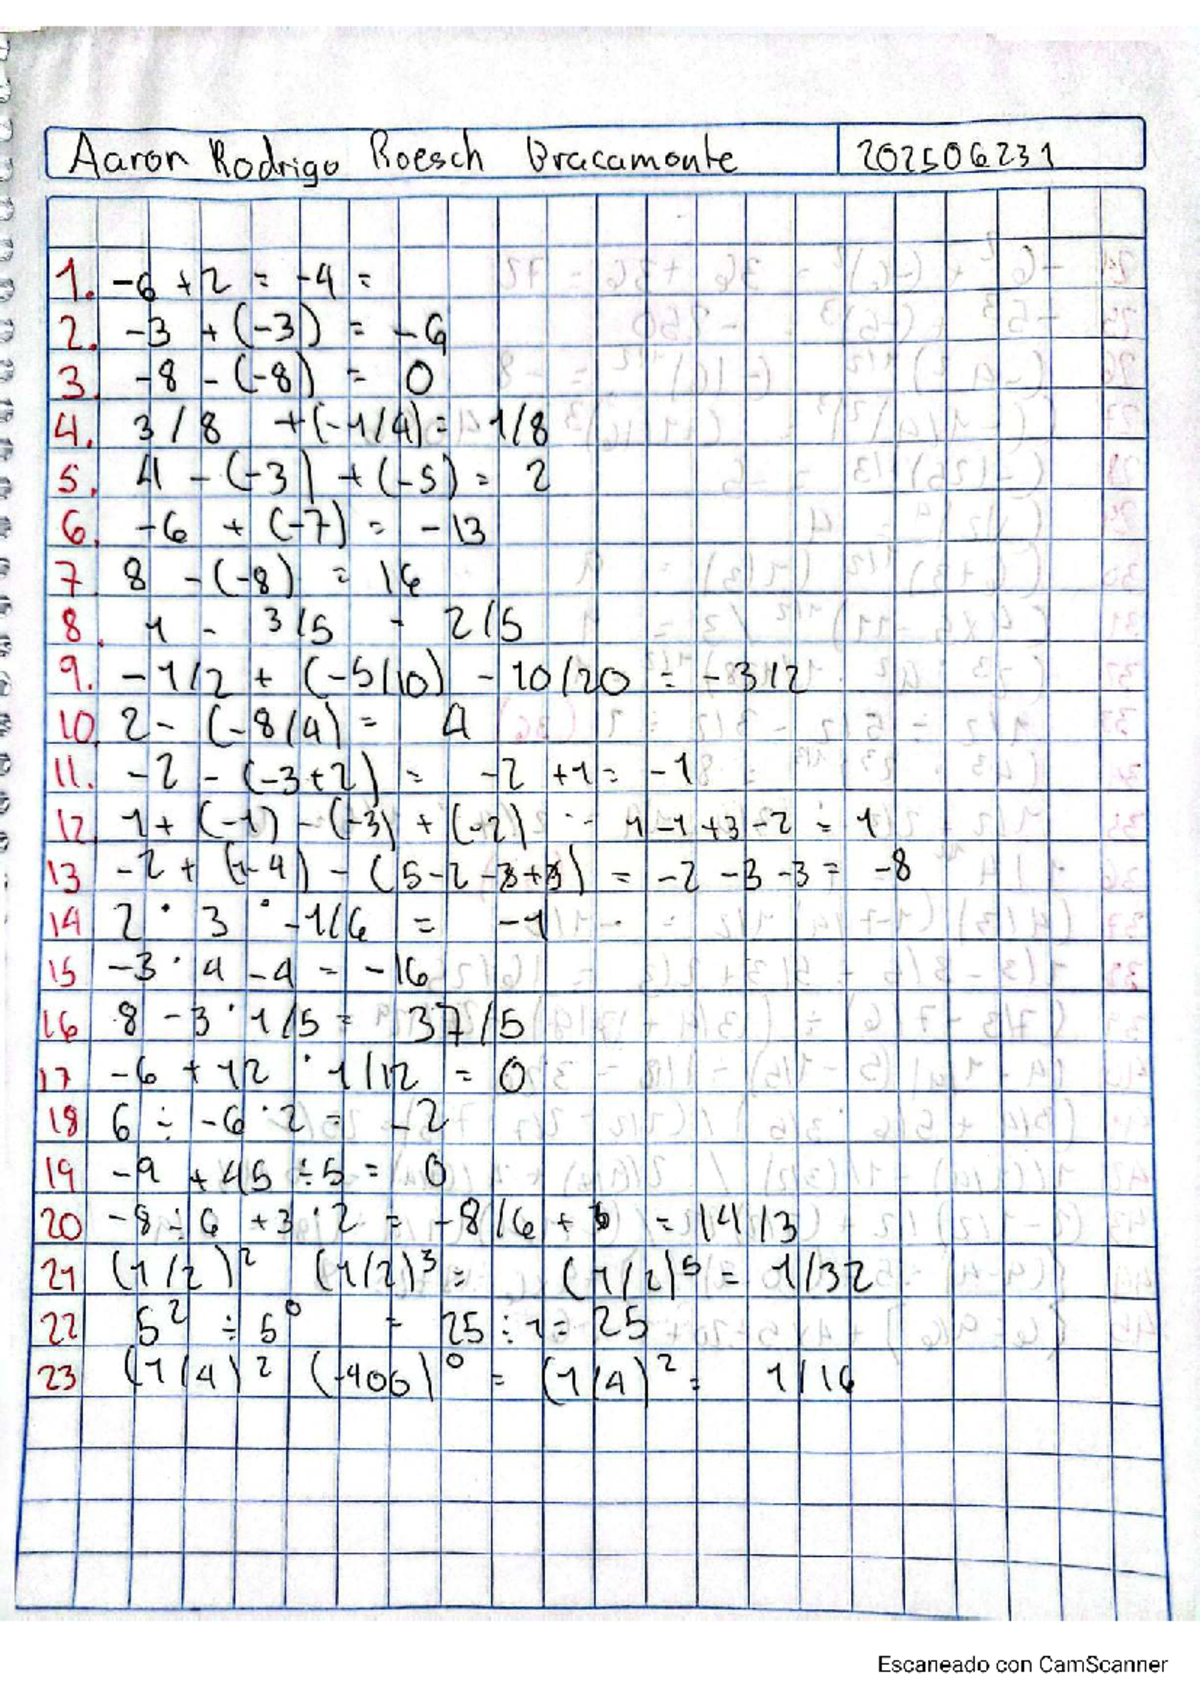 Aaron Rodrigo Roesch Bracamonte 202506231
1. -6 + 2 = -4 =
2. -3 + (-3) = -6
3. -8 - (-8) = 0
4. 3/8 + (-1/4) = 1/8
5. 4 - (-3) + (-5) = 2
6. -6 + (-7) = -13
7 8 - (-8) = 16
8. 1 - 3/5 - 2/5
9. -1/2 + (-5/10) - 10/20 = -3/2
10. 2 - (-8/4) = 4
11. -2 - (-3+2) = -2 +1 = -1
12. 1 + (-1) - (-3) + (-2) = 1-1+3-2 = 1
13 -2 + (1-4) - (5-2- + ) = -2 -3 -3 = -8
14 2 · 3 · -1/6 = -1
15 -3 · 4 - 4 = -16
16 8 - 3 · 1/5 = 37/5
17 -6 + 12 · 1/12 = 0
18 6 ÷ -6 · 2 = -2
19 -9 + 45 ÷ 5 = 0
20 -8 ÷ 6 + 3 · 2 = -8/6 + 6 = 14/3
21 (1/2)² (1/2)³ = (1/2)⁵ = 1/32
22 5² ÷ 5⁰ = 25 ÷ 1 = 25
23 (1/4)² (-406)⁰ = (1/4)² = 1/16
Escaneado con CamScanner